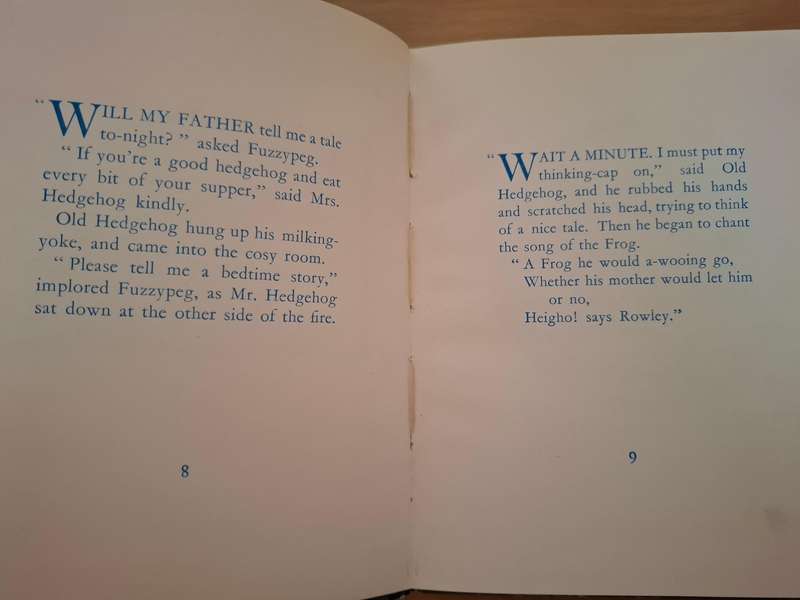 “WILL MY FATHER tell me a tale
to-night?” asked Fuzzypeg.
“If you're a good hedgehog and eat
every bit of your supper,” said Mrs.
Hedgehog kindly.
Old Hedgehog hung up his milking-
yoke, and came into the cosy room.
“Please tell me a bedtime story,”
implored Fuzzypeg, as Mr. Hedgehog
sat down at the other side of the fire.
8
“WAIT A MINUTE. I must put my
thinking-cap on,” said Old
Hedgehog, and he rubbed his hands
and scratched his head, trying to think
of a nice tale. Then he began to chant
the song of the Frog.
“A Frog he would a-wooing go,
Whether his mother would let him
or no,
Heigho! says Rowley.”
9